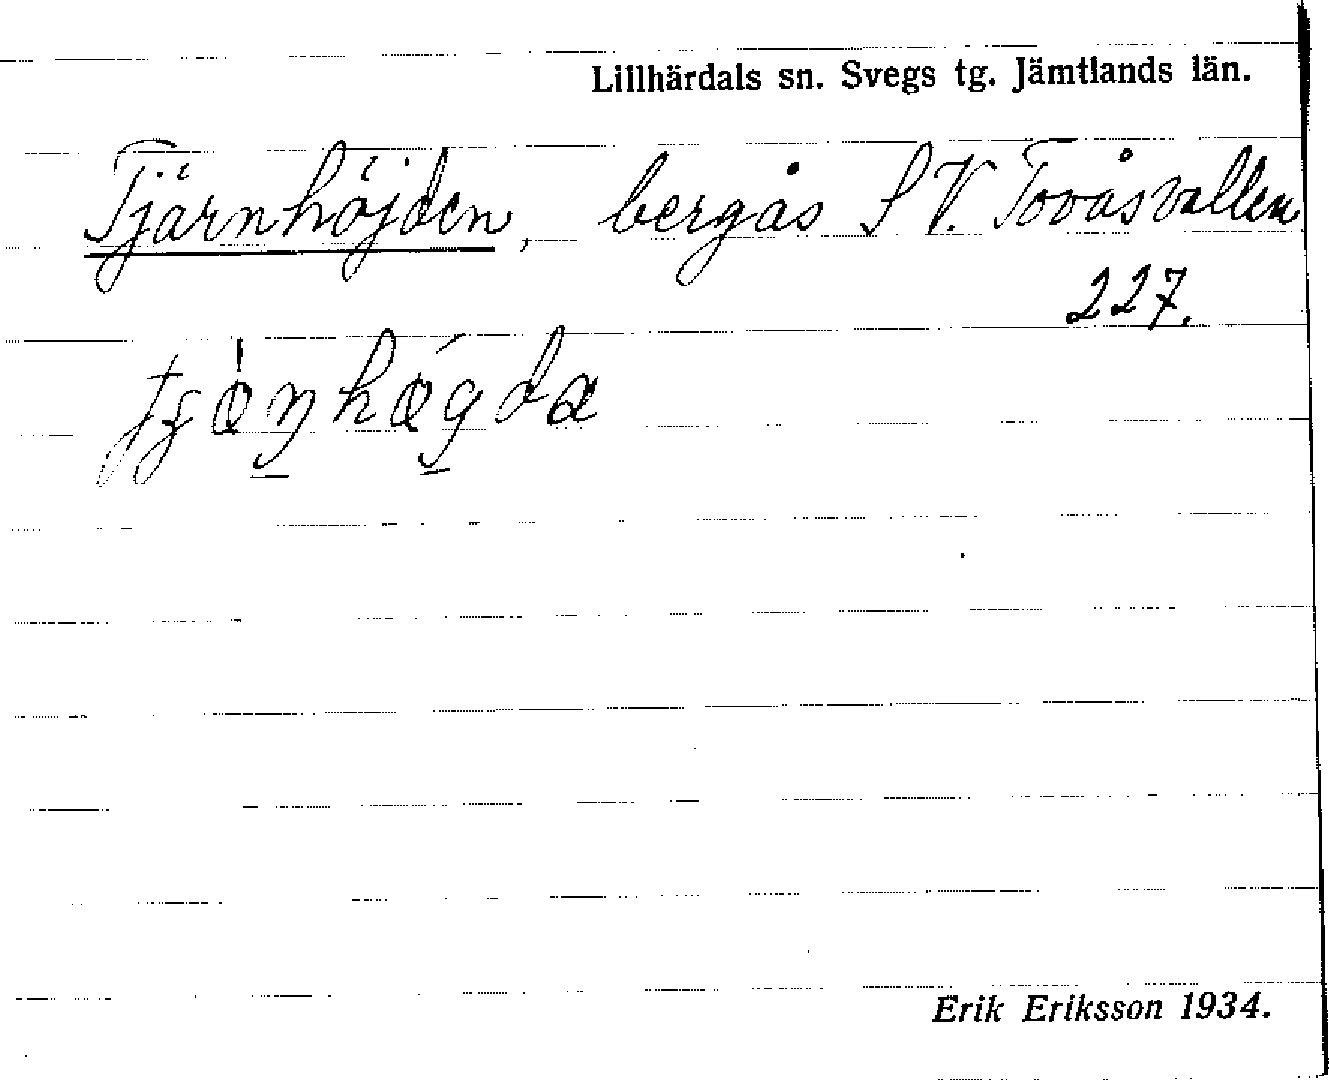 Lillhärdals sn. Svegs tg. Jämtlands län.
Tjärnhöjden, bergås S V. Tovåsvallen
227.
Erik Eriksson 1934.